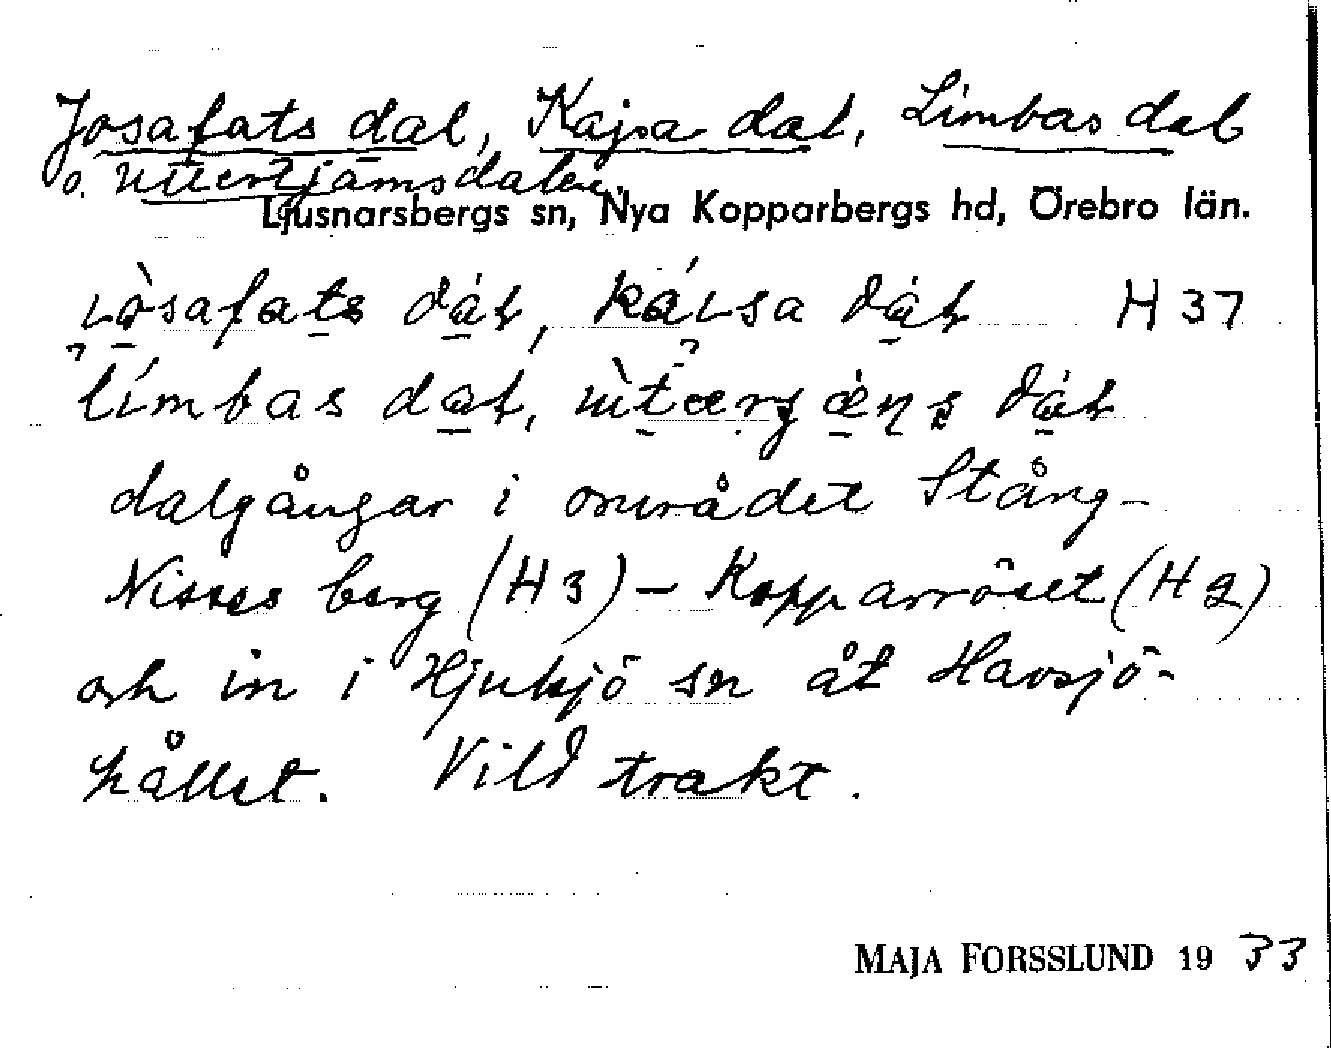 Josafats dal, Kajsa dal, Limbas dal
o. Uttertjärnsdalen.
Ljusnarsbergs sn, Nya Kopparbergs hd, Örebro län.
H 37
límbas
dalgångar i området Stång-
Nisses berg (H3) – Kopparröset (H2)
och in i Hjulsjö sn åt Havsjö-
hållet. Vild trakt.
MAJA FORSSLUND 19 33